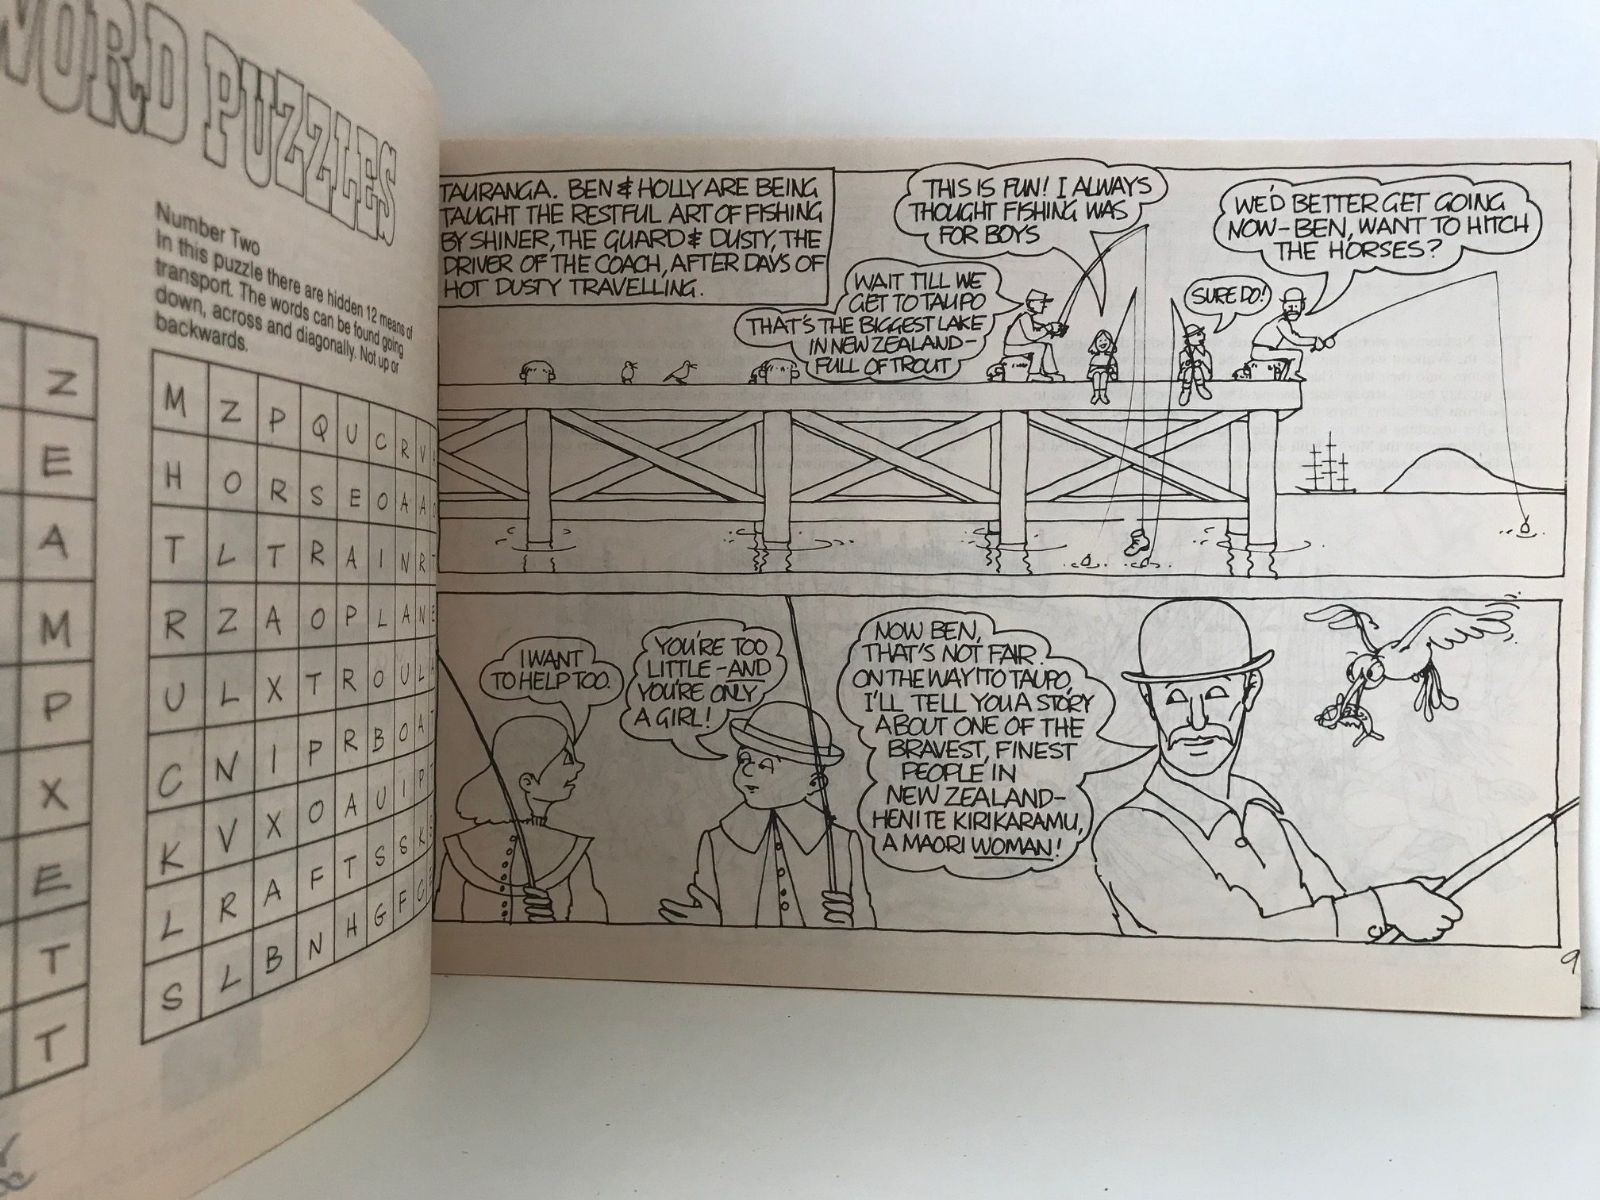 WORD PUZZLES
Number Two
In this puzzle there are hidden 12 means of
transport. The words can be found going
down, across and diagonally. Not up or
backwards.
Z
E
A
M
P
X
E
T
T
M Z P Q U C R V
H O R S E O A A
T L T R A I N R T
R Z A O P L A N E
U L X T R O U L
C N I P R B O A T
K V X O A U I P
L R A F T S S K
S L B N H G F C
TAURANGA. BEN & HOLLY ARE BEING
TAUGHT THE RESTFUL ART OF FISHING
BY SHINER, THE GUARD & DUSTY, THE
DRIVER OF THE COACH, AFTER DAYS OF
HOT DUSTY TRAVELLING.
WAIT TILL WE
GET TO TAUPO
THAT'S THE BIGGEST LAKE
IN NEW ZEALAND-
FULL OF TROUT
THIS IS FUN! I ALWAYS
THOUGHT FISHING WAS
FOR BOYS
SURE DO!
WE'D BETTER GET GOING
NOW-BEN, WANT TO HITCH
THE HORSES?
I WANT
TO HELP TOO.
YOU'RE TOO
LITTLE-AND
YOU'RE ONLY
A GIRL!
NOW BEN,
THAT'S NOT FAIR.
ON THE WAY TO TAUPO,
I'LL TELL YOU A STORY
ABOUT ONE OF THE
BRAVEST, FINEST
PEOPLE IN
NEW ZEALAND-
HENI TE KIRIKARAMU,
A MAORI WOMAN!
9